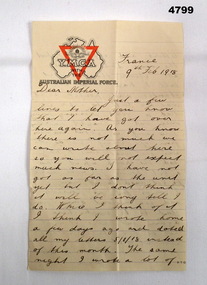 4799
Y.M.C.A
AUSTRALIAN IMPERIAL FORCE.
France
9th Feb 1918.
Dear Mother,
Just a few
lines to let you know
that I have got over
here again. As you know
there is not much we
can write about here
so you will not expect
much news. I have not
got as far as the unit
yet but I don't think
it will be long till I
do. While I think of it
I think I wrote home
a few days ago and dated
all my letters 5/1/18 instead
of this month. The same
night I wrote a lot of